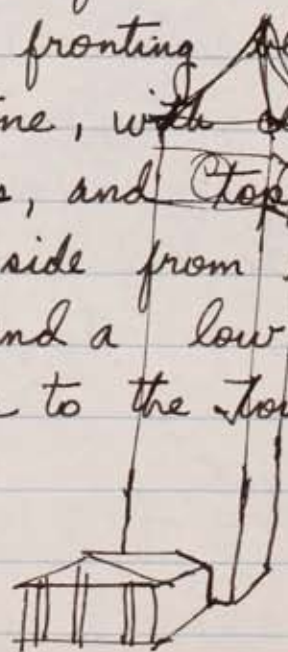 fronting
with
and top
side from
and a low
to the